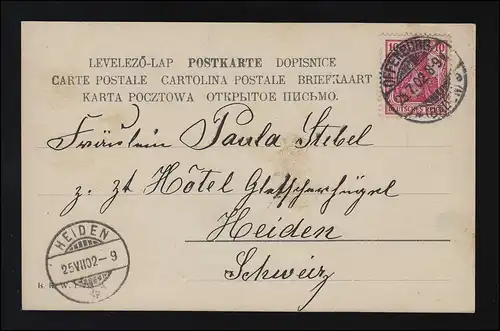 LEVELEZŐ-LAP POSTKARTE DOPISNICE
CARTE POSTALE CARTOLINA POSTALE BRIEFKAART
KARTA POCZTOWA ОТКРЫТОЕ ПИСЬМО.
OFFENBURG
10 10
Fräulein Paula Stebel
z. zt Hôtel Gletscherhügel
Heiden
Schweiz
HEIDEN
25VII02-9